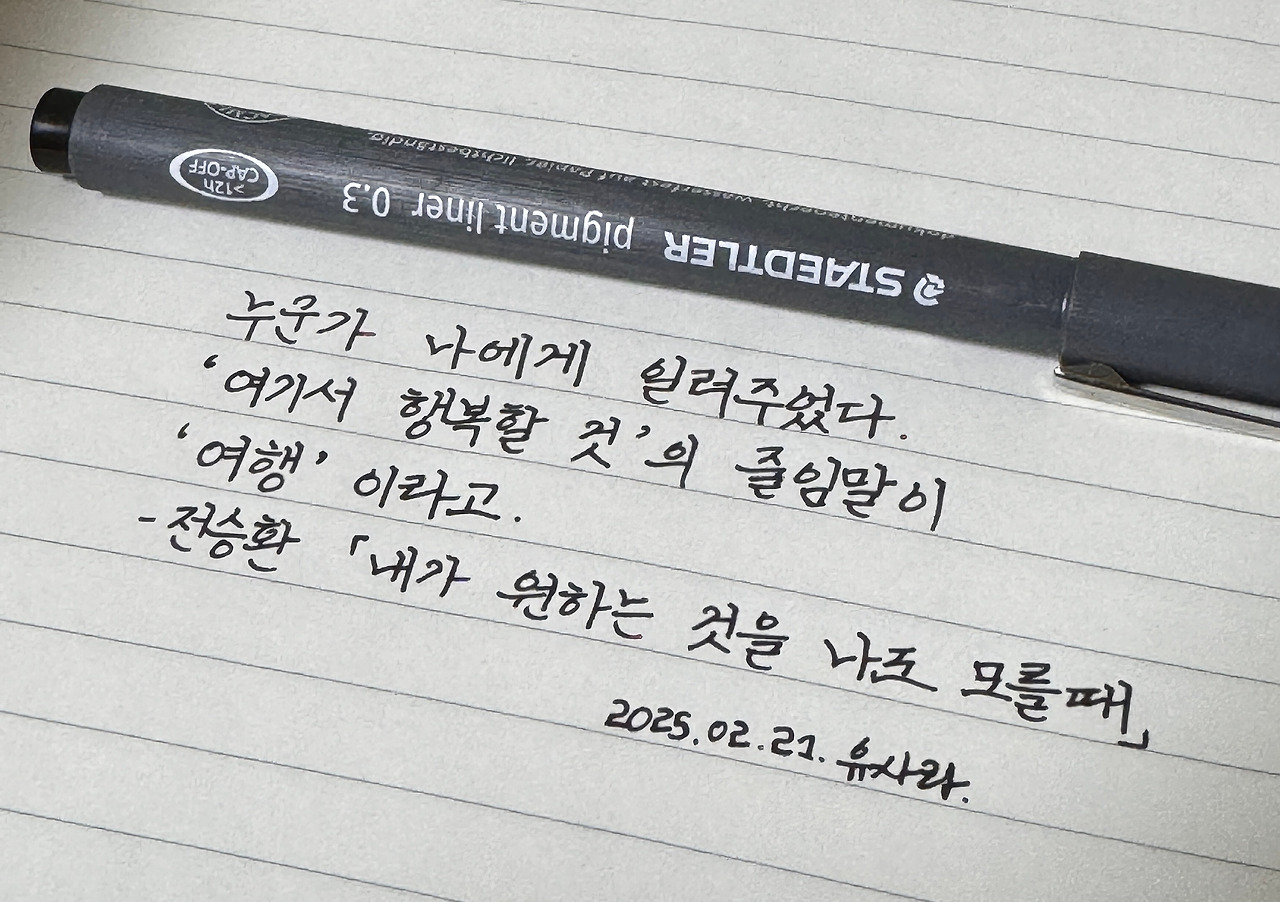 dokumentenecht, wasserfest auf Papier, lichtbeständig.
STAEDTLER pigment liner 0.3
>12h
CAP-OFF
누군가 나에게 일려주었다.
‘여기서 행복할 것’의 줄임말이
‘여행’ 이라고.
- 전승환 「내가 원하는 것을 나도 모를때」
2025.02.21. 유사라.